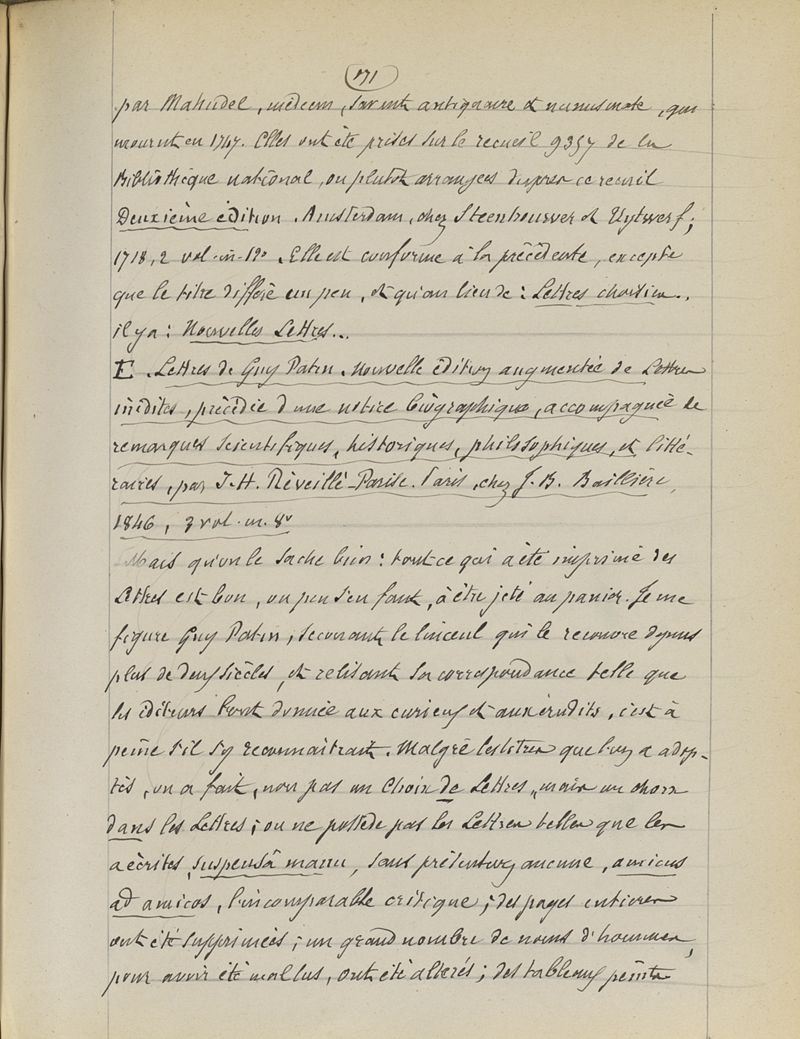 171
par Mahudel, médecin, savant antiquaire et numismate, qui
mourut en 1747. Elles ont été prises sur le recueil 9357 de la
Bibliothèque national, ou plutôt arrangées d'après ce recueil
Deuxième édition. Amsterdam, chez Steenhouwer et Uytwerf;
1718, 2 vol. in-12o. Elle est conforme à la précédente, excepté
que le titre différe un peu, et qu'au lieu de: Lettres choisies..,
il y a: Nouvelles Lettres...
E. Lettres de Guy Patin. Nouvelle édition augmentée de Lettres
inédites, précédée d'une notice biographique, accompagnée de
remarques scientifiques, historiques, philosophiques, et litté-
raires, par J-H. Réveillé-Parise. Paris, chez J. B. Baillière,
1846, 3 vol. in. 8o
Mais qu'on le sache bien: tout ce qui a été imprimé des
Lettres est bon, ou peu s'en faut, à être jeté au panier. Je me
figure Guy Patin, secouant le linceul qui le recouvre depuis
plus de deux siècles, et relisant sa correspondance telle que
les éditeurs l'ont donnée aux curieux et aux érudits, c'est à
peine s'il s'y reconnaitrait. Malgré les titres que l'on a adop-
tés, on a fait, non pas un choix de Lettres, mais un choix
dans les Lettres; on ne possède pas les Lettres telles que les
a écrites, suspensâ manu, sans prétention aucune, amicus
ad amicos, l'incomparable critique; des pages entières
ont été supprimées; un grand nombre de noms d'hommes,
pour avoir été mal lus, ont été altérés; des tableaux peints